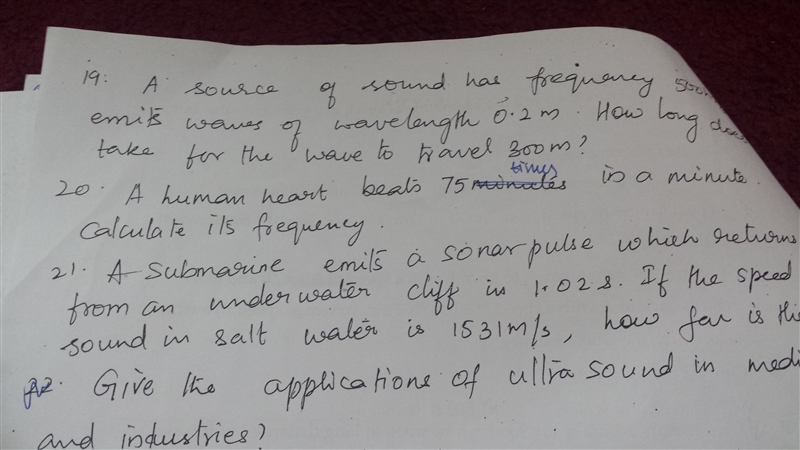 19. A source of sound has frequency
emits waves of wavelength 0.2 m. How long does
take for the wave to travel 300m?
20. A human heart beats 75 times in a minute.
Calculate its frequency.
21. A submarine emits a sonar pulse which returns
from an underwater cliff in 1.02 s. If the speed
sound in salt water is 1531 m/s, how far is the
22. Give the applications of ultra sound in medi
and industries?